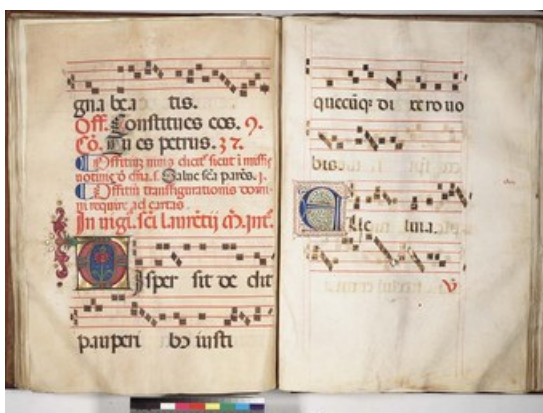 gna bea tis.
Off. Constitues eos. 9.
Co. Tu es petrus. 37.
Offitium dicit sicut i
Salve sca parēs. 1.
Offitium transfigurationis domi
ni require ad cartas
In vigi. sci laurētij
Disper sit de dit
pauperi bo iusti
quecūq; di xe ro vo
bis.
Alle luia.
V